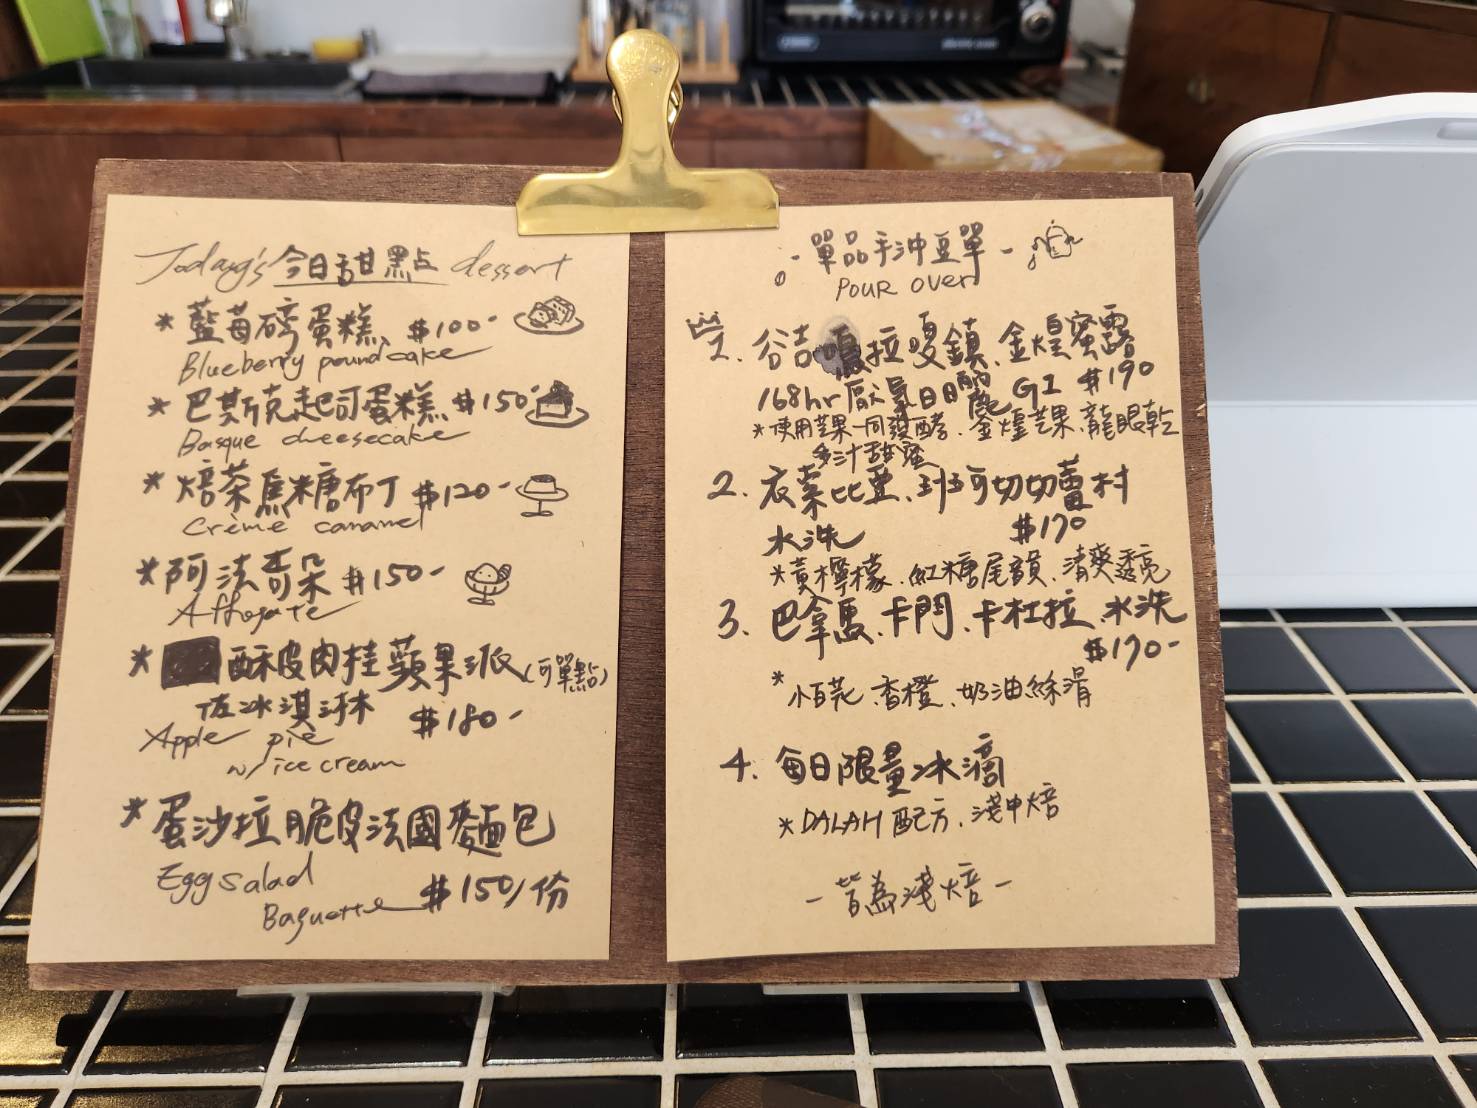 Today's 今日甜點 dessert
* 藍莓磅蛋糕 $100-
Blueberry poundcake
* 巴斯克起司蛋糕 $150-
Basque cheesecake
* 焙茶焦糖布丁 $120-
Crème caramel
* 阿法奇朵 $150-
Affogato
* 酥皮肉桂蘋果派(可單點)
佐冰淇淋 $180-
Apple pie
w/ ice cream
* 蛋沙拉脆皮法國麵包
Egg salad
Baguette $150/份
- 單品手沖豆單 -
POUR OVER
1. 谷吉 拉嘎鎮.金煌蜜露
168hr厭氧日曬 G1 $190
*使用芒果一同發酵.金煌芒果.龍眼乾
多汁甜蜜
2. 衣索比亞.班可切切蕾村
水洗 $170
*黃檸檬.紅糖尾韻.清爽透亮
3. 巴拿馬.卡門.卡杜拉.水洗
$170-
*小百花.香橙.奶油絲滑
4. 每日限量冰滴
* DALAH 配方.淺中焙
- 皆為淺焙 -